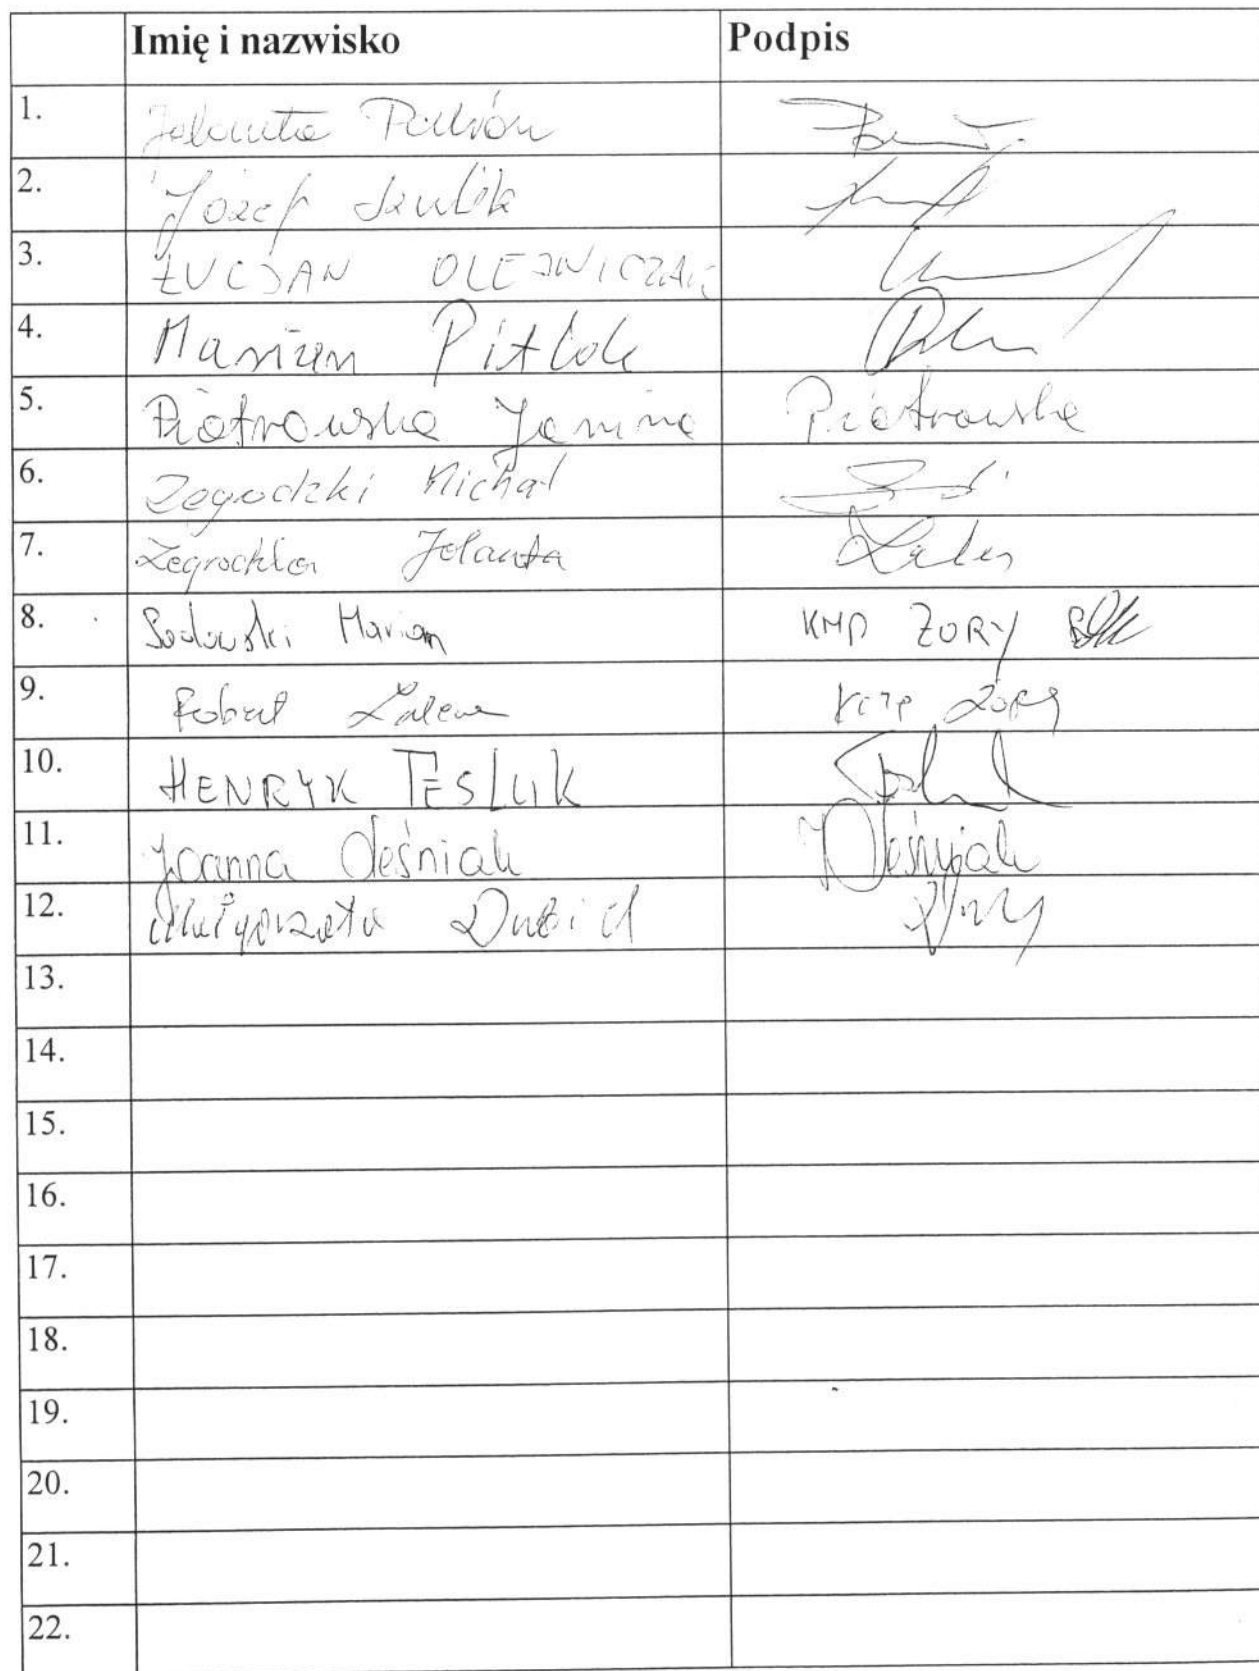 Imię i nazwisko Podpis
1. Jolanta
2. Józef Szulik
3. ŁUCJAN OLEJNICZAK
4. Marian Pitlok
5. Piotrowska Janina Piotrowska
6. Zegrodzki Michał
7. Zegrodzka Jolanta
8. Sodowski Marian KMP ŻORY
9. Robert ŻORY
10. HENRYK TESLUK
11. Joanna Oleśniak JOleśniak
12. Małgorzata Dubiel
13.
14.
15.
16.
17.
18.
19.
20.
21.
22.